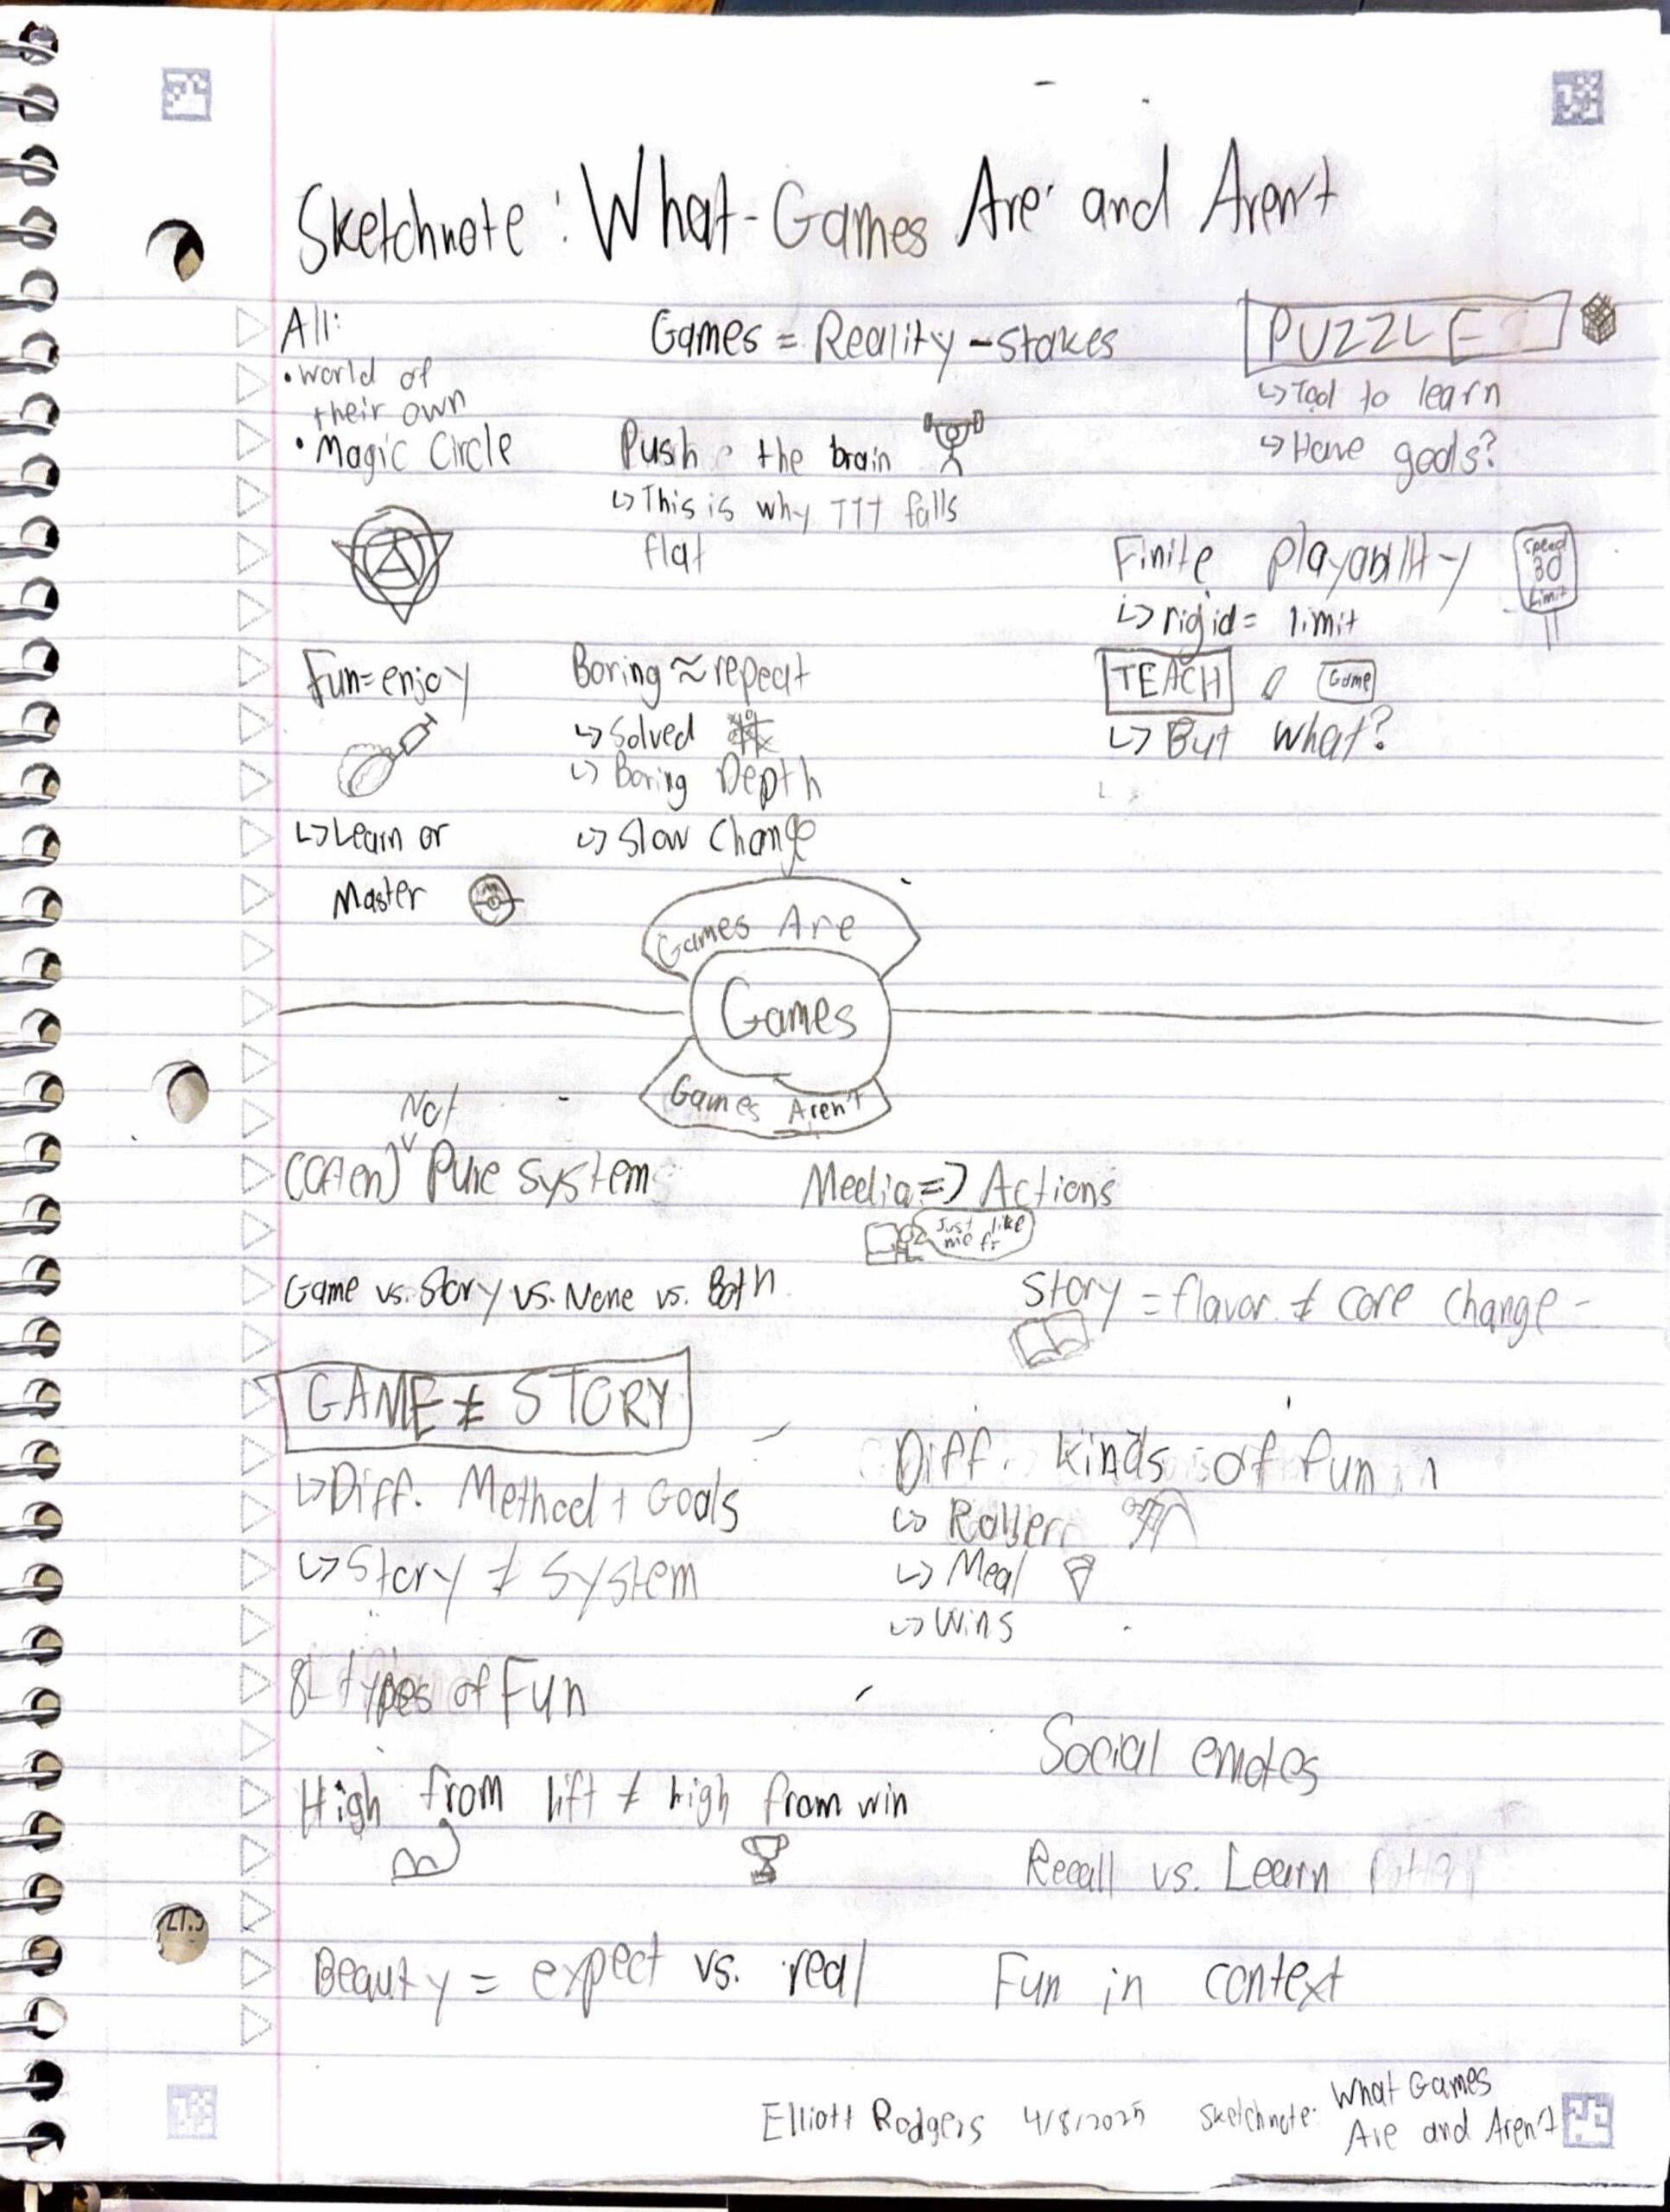 Sketchnote: What Games Are and Aren't
All:
• World of
their own
• Magic Circle
A
Games = Reality - stakes
Push the brain
↳ This is why TTT falls
flat
PUZZLE
↳ Tool to learn
↳ Have goals?
Finite Playability
↳ rigid = limit
Speed
30
Limit
TEACH
Game
↳ But what?
Fun = enjoy
↳ Learn or
Master
Boring ≈ repeat
↳ Solved
↳ Boring Depth
↳ Slow Change
Games Are
Games
Games Aren't
Not
(Often) ˅ Pure System
Media => Actions
Just like
me fr
Game vs. Story vs. None vs. Both
Story = flavor ≠ core change
GAME ≠ STORY
↳ Diff. Method + Goals
↳ Story ≠ System
Diff. Kinds of fun
↳ Roller
↳ Meal
↳ Wins
8 types of Fun
Social emotes
High from lift ≠ high from win
Recall vs. Learn
Beauty = expect vs. real
Fun in context
Elliott Rodgers 4/8/2025 Sketchnote: What Games
Are and Aren't